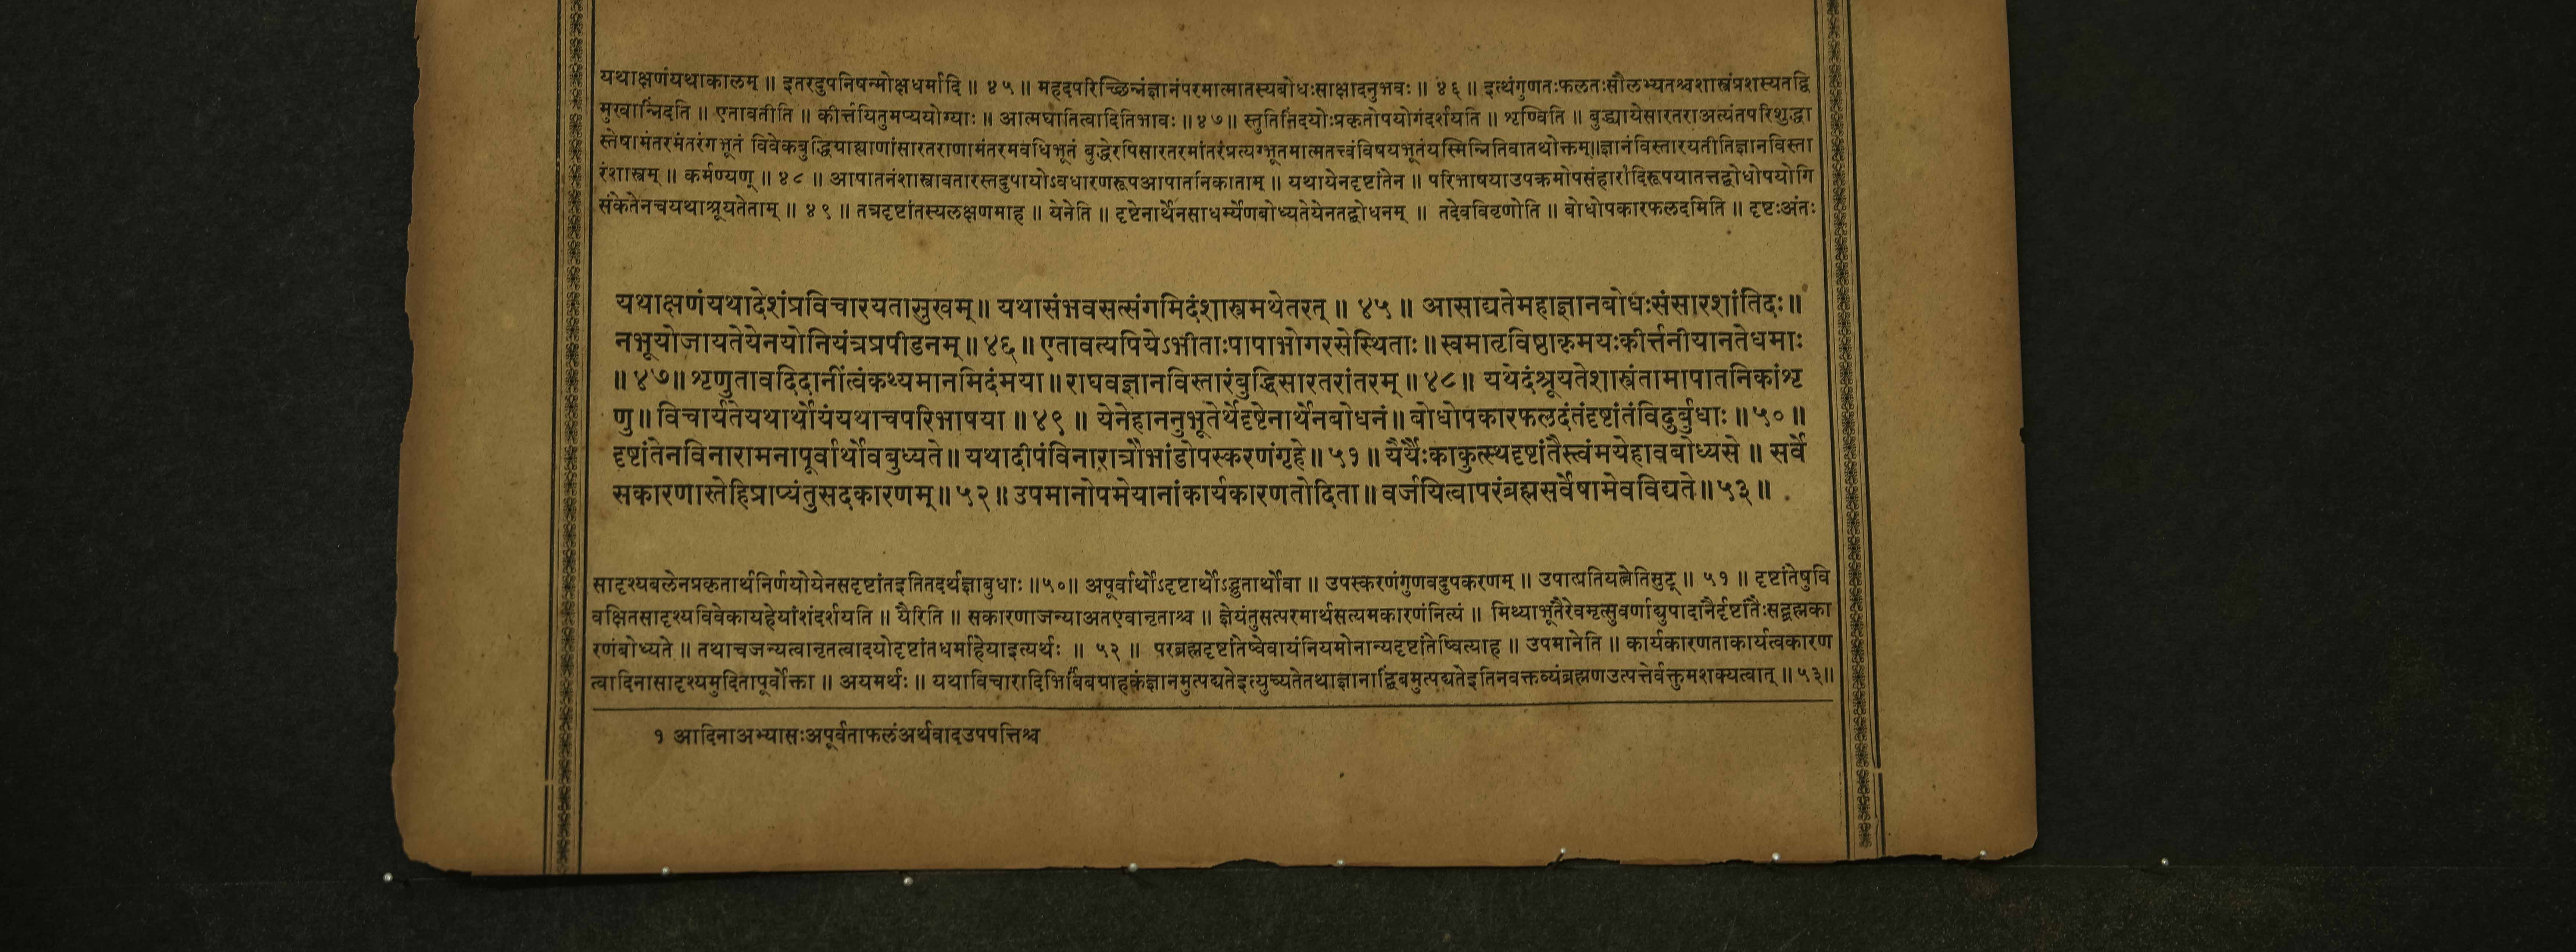 यथाक्षणंयथाकालम् ॥ इतरदुपनिषन्मोक्षधर्मादि ॥ ४५ ॥ महदपरिच्छिन्नंज्ञानंपरमात्मातस्यबोधःसाक्षादनुभवः ॥ ४६ ॥ इत्थंगुणतःफलतःसौलभ्यतश्चशास्त्रंप्रशस्यतद्वि
मुखान्निंदति ॥ एतावतीति ॥ कीर्त्तयितुमप्ययोग्याः ॥ आत्मघातित्वादितिभावः ॥ ४७ ॥ स्तुतिनिंदयोःप्रकृतोपयोगंदर्शयति ॥ शृण्विति ॥ बुद्ध्यायेसारतराअत्यंतपरिशुद्धा
स्तेषामंतरमंतरंगभूतं विवेकबुद्धिग्राह्याणांसारतराणामंतरमवधिभूतं बुद्धेरपिसारतरमांतरंप्रत्यग्भूतमात्मतत्त्वंविषयभूतंयस्मिन्नितिवातथोक्तम्॥ज्ञानंविस्तारयतीतिज्ञानविस्ता
रंशास्त्रम् ॥ कर्मण्यण् ॥ ४८ ॥ आपातनंशास्त्रावतारस्तदुपायोऽवधारणरूपआपातनिकाताम् ॥ यथायेनदृष्टांतेन ॥ परिभाषयाउपक्रमोपसंहारा१दिरूपयातत्तद्बोधोपयोगि
संकेतेनचयथाश्रूयतेताम् ॥ ४९ ॥ तत्रदृष्टांतस्यलक्षणमाह ॥ येनेति ॥ दृष्टेनार्थेनसाधर्म्येणबोध्यतेयेनतद्बोधनम् ॥ तदेवविवृणोति ॥ बोधोपकारफलदमिति ॥ दृष्टःअंतः
यथाक्षणंयथादेशंप्रविचारयतासुखम् ॥ यथासंभवसत्संगमिदंशास्त्रमथेतरत् ॥ ४५ ॥ आसाद्यतेमहाज्ञानबोधःसंसारशांतिदः ॥
नभूयोजायतेयेनयोनियंत्रप्रपीडनम् ॥ ४६ ॥ एतावत्यपियेऽभीताःपापाभोगरसेस्थिताः ॥ स्वमातृविष्ठाकृमयःकीर्त्तनीयानतेधमाः
॥ ४७ ॥ शृणुतावदिदानींत्वंकथ्यमानमिदंमया ॥ राघवज्ञानविस्तारंबुद्धिसारतरांतरम् ॥ ४८ ॥ यथेदंश्रूयतेशास्त्रंतामापातनिकांशृ
णु ॥ विचार्यतेयथार्थोयंयथाचपरिभाषया ॥ ४९ ॥ येनेहाननुभूतेर्थेदृष्टेनार्थेनबोधनं ॥ बोधोपकारफलदंतंदृष्टांतंविदुर्बुधाः ॥ ५० ॥
दृष्टांतेनविनारामनापूर्वार्थोवबुध्यते ॥ यथादीपंविनारात्रौभांडोपस्करणंगृहे ॥ ५१ ॥ यैर्यैःकाकुत्स्थदृष्टांतैस्त्वंमयेहावबोध्यसे ॥ सर्वे
सकारणास्तेहिप्राप्यंतुसदकारणम् ॥ ५२ ॥ उपमानोपमेयानांकार्यकारणतोदिता ॥ वर्जयित्वापरंब्रह्मसर्वेषामेवविद्यते ॥ ५३ ॥
सादृश्यबलेनप्रकृतार्थनिर्णयोयेनसदृष्टांतइतितदर्थज्ञाबुधाः ॥५०॥ अपूर्वार्थोऽदृष्टार्थोऽद्भुतार्थोवा ॥ उपस्करणंगुणवदुपकरणम् ॥ उपात्प्रतियत्नेतिसुट् ॥ ५१ ॥ दृष्टांतेषुवि
वक्षितसादृश्यविवेकायहेयांशंदर्शयति ॥ यैरिति ॥ सकारणाजन्याअतएवानृताश्च ॥ ज्ञेयंतुसत्परमार्थसत्यमकारणंनित्यं ॥ मिथ्याभूतैरेवमृत्सुवर्णाद्युपादानैर्दृष्टांतैःसद्ब्रह्मका
रणंबोध्यते ॥ तथाचजन्यत्वानृतत्वादयोदृष्टांतधर्माहेयाइत्यर्थः ॥ ५२ ॥ परब्रह्मदृष्टांतेष्वेवायंनियमोनान्यदृष्टांतेष्वित्याह ॥ उपमानेति ॥ कार्यकारणताकार्यत्वकारण
त्वादिनासादृश्यमुदितापूर्वोक्ता ॥ अयमर्थः ॥ यथाविचारादिभिर्बिंबग्राहकंज्ञानमुत्पद्यतेइत्युच्यतेतथाज्ञानाद्बिंबमुत्पद्यतेइतिनवक्तव्यंब्रह्मणउत्पत्तेर्वक्तुमशक्यत्वात् ॥ ५३॥
१ आदिनाअभ्यासःअपूर्वताफलंअर्थवादउपपत्तिश्च